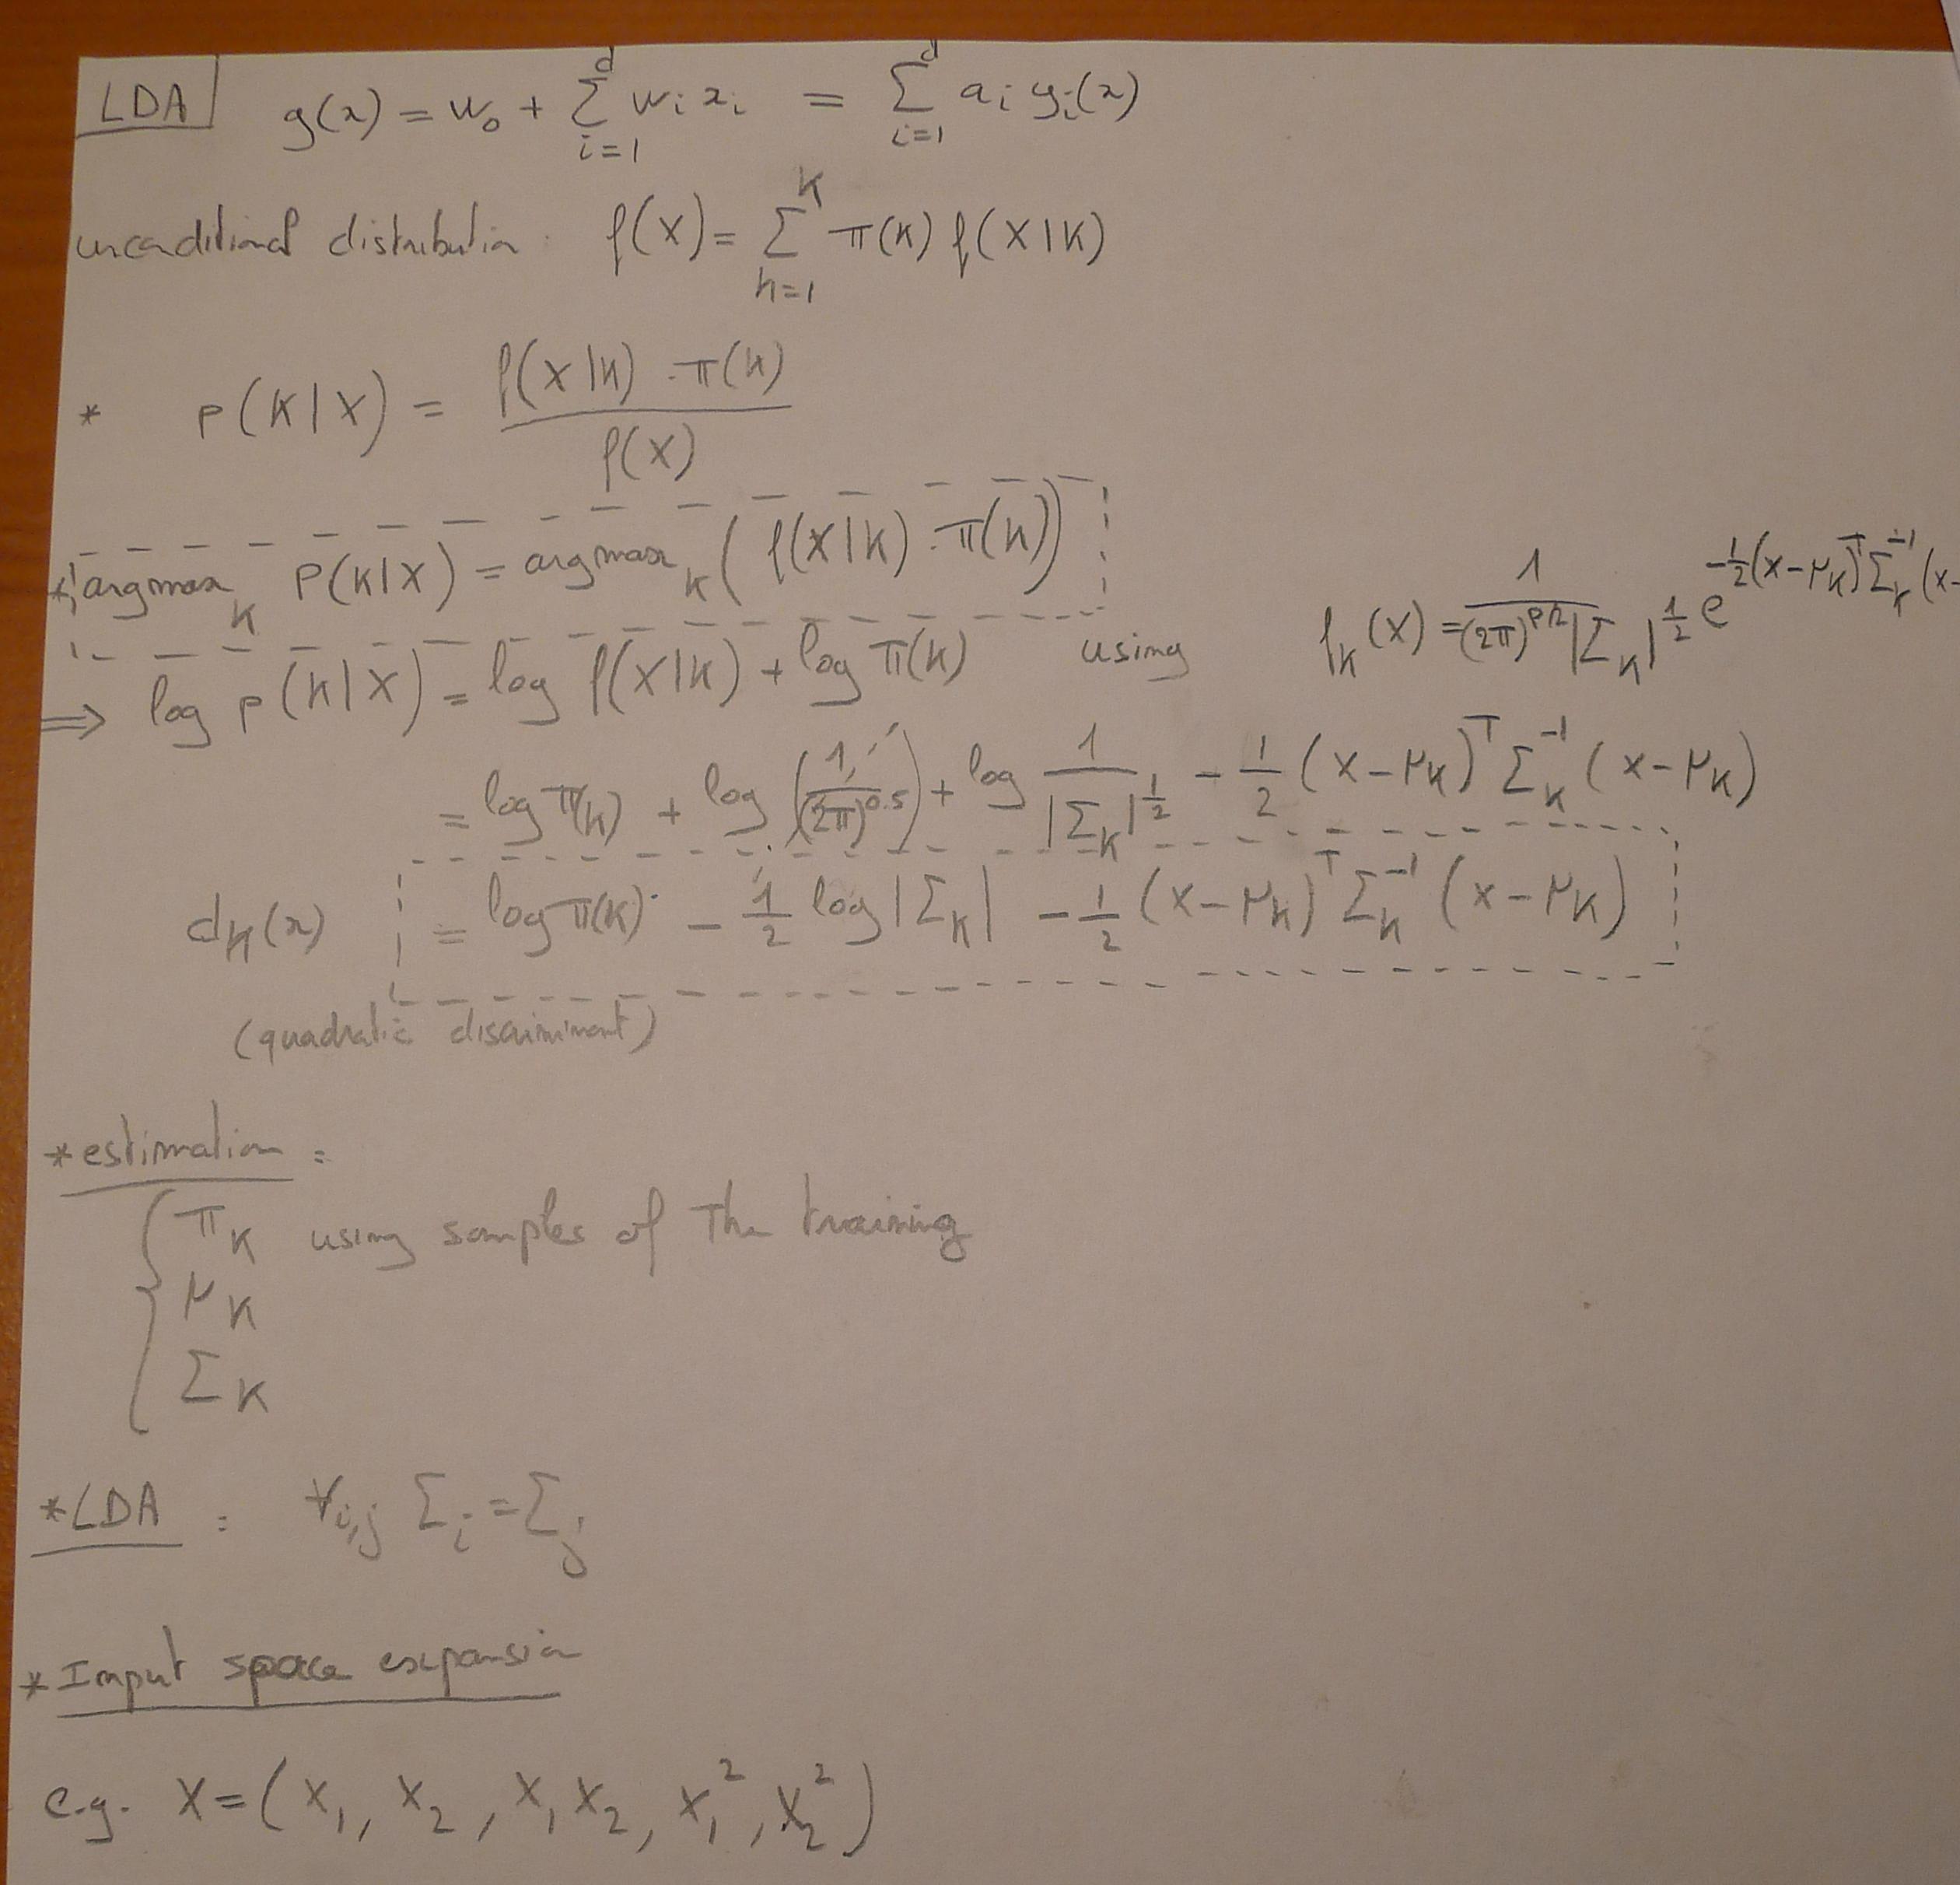 LDA g(x) = w₀ + Σ_{i=1}^{d} wᵢ xᵢ = Σ_{i=1}^{d} aᵢ yᵢ(x)
unconditional distribution : f(X) = Σ_{k=1}^{K} π(k) f(X|k)
* p(k|X) = f(X|k) . π(k) / f(X)
* argmax_k P(k|X) = argmax_k ( f(X|k) . π(k) )
⇒ log p(k|X) = log f(X|k) + log π(k) using f_k(X) = 1 / (2π)^{p/2} |Σ_k|^{1/2} e^{-1/2 (x-μ_k)^T Σ_k^{-1} (x-
= log π(k) + log (1 / (2π)^{0.5}) + log 1 / |Σ_k|^{1/2} - 1/2 (x-μ_k)^T Σ_k^{-1} (x-μ_k)
d_k(x) = log π(k) - 1/2 log |Σ_k| - 1/2 (x-μ_k)^T Σ_k^{-1} (x-μ_k)
(quadratic discriminant)
* estimation :
{ π_k using samples of the training
μ_k
Σ_k
* LDA : ∀i,j Σ_i = Σ_j
* Input space expansion
e.g. X = (X₁, X₂, X₁X₂, X₁², X₂²)